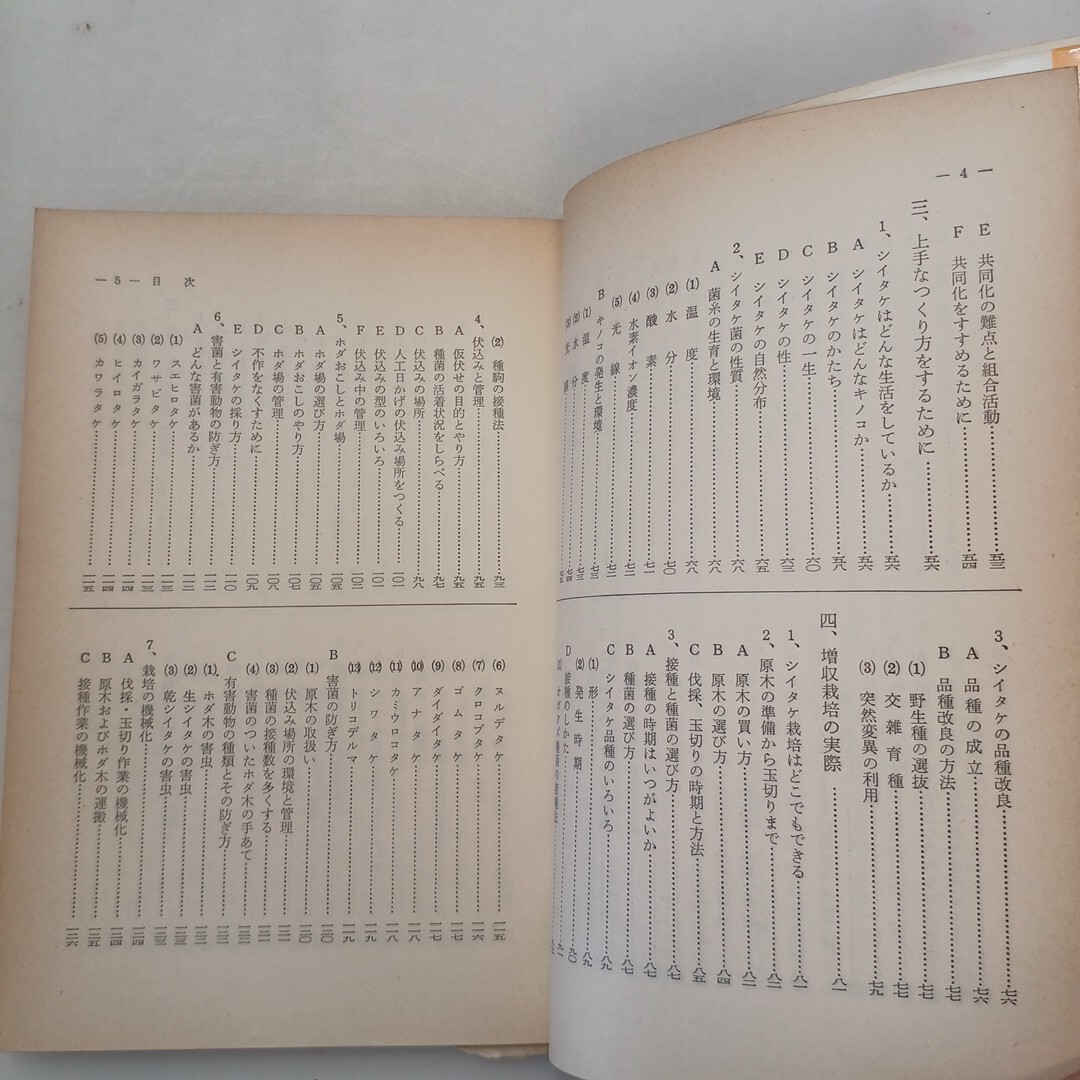 — 4 —
E 共同化の難点と組合活動……五三
F 共同化をすすめるために……五四
三、上手なつくり方をするために……五六
1、シイタケはどんな生活をしているか……五六
A シイタケはどんなキノコか……五六
B シイタケのかたち……五八
C シイタケの一生……六〇
D シイタケの性……六三
E シイタケの自然分布……六五
2、シイタケ菌の性質……六八
A 菌糸の生育と環境……六八
⑴ 温度……六八
⑵ 水分……七〇
⑶ 酸素……七一
⑷ 水素イオン濃度……七二
⑸ 光線……七二
B キノコの発生と環境……七三
⑴ 温度……七三
⑵ 水分……七四
⑶ 光線……
3、シイタケの品種改良……七六
A 品種の成立……七六
B 品種改良の方法……七七
⑴ 野生種の選抜……七七
⑵ 交雑育種……七七
⑶ 突然変異の利用……七九
四、増収栽培の実際……八一
1、シイタケ栽培はどこでもできる……八一
2、原木の準備から玉切りまで……八二
A 原木の買い方……八二
B 原木の選び方……八四
C 伐採、玉切りの時期と方法……八五
3、接種と種菌の選び方……八七
A 接種の時期はいつがよいか……八七
B 種菌の選び方……八七
C シイタケ品種のいろいろ……八九
⑴ 形……八九
⑵ 発生時期……九〇
D 接種のしかた……九一
⑴ オガクズ種菌の接種法……
— 5 — 目次
⑵ 種駒の接種法……九三
4、伏込みと管理……九五
A 仮伏せの目的とやり方……九五
B 種菌の活着状況をしらべる……九七
C 伏込みの場所……九八
D 人工日かげの伏込み場所をつくる……一〇一
E 伏込みの型のいろいろ……一〇一
F 伏込み中の管理……一〇二
5、ホダおこしとホダ場……一〇五
A ホダ場の選び方……一〇五
B ホダおこしのやり方……一〇七
C ホダ場の管理……一〇八
D 不作をなくすために……一〇九
E シイタケの採り方……一一〇
6、害菌と有害動物の防ぎ方……一一二
A どんな害菌があるか……一一三
⑴ スエヒロタケ……一一三
⑵ ワサビタケ……一一三
⑶ カイガラタケ……一一四
⑷ ヒイロタケ……一一四
⑸ カワラタケ……一一五
⑹ ヌルデタケ……一一五
⑺ クロコブタケ……一一六
⑻ ゴムタケ……一一七
⑼ ダイダイタケ……一一七
⑽ アナタケ……一一八
⑾ カミウロコタケ……一一八
⑿ シワタケ……一一九
⒀ トリコデルマ……一一九
B 害菌の防ぎ方……一二〇
⑴ 原木の取扱い……一二〇
⑵ 伏込み場所の環境と管理……一二一
⑶ 種菌の接種数を多くする……一二一
⑷ 害菌のついたホダ木の手あて……一二二
C 有害動物の種類とその防ぎ方……一二二
⑴ ホダ木の害虫……一二三
⑵ 生シイタケの害虫……一二三
⑶ 乾シイタケの害虫……一二三
7、栽培の機械化……一二四
A 伐採・玉切り作業の機械化……一二四
B 原木およびホダ木の運搬……一二五
C 接種作業の機械化……一二六